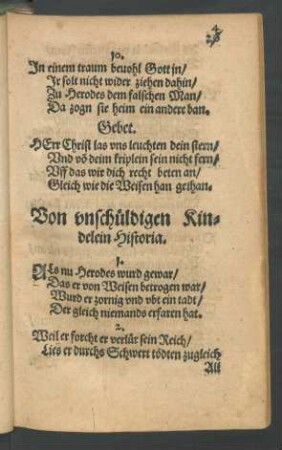 10.
In einem traum bevohl Gott jn/
Ir solt nicht wider ziehen dahin/
Zu Herodes dem falschen Man/
Da zogn sie heim ein andere ban.
Gebet.
HErr Christ las vns leuchten dein stern/
Vnd võ deim kriplein sein nicht fern/
Uff das wir dich recht beten an/
Gleich wie die Weisen han gethan.
Von vnschüldigen Kin-
delein Historia.
1.
ALs nu Herodes wurd gewar/
Das er von Weisen betrogen war/
Wurd er zornig vnd vbt ein tadt/
Der gleich niemands erfaren hat.
2.
Weil er forcht er verlür sein Reich/
Lies er durchs Schwert tödten zugleich
All